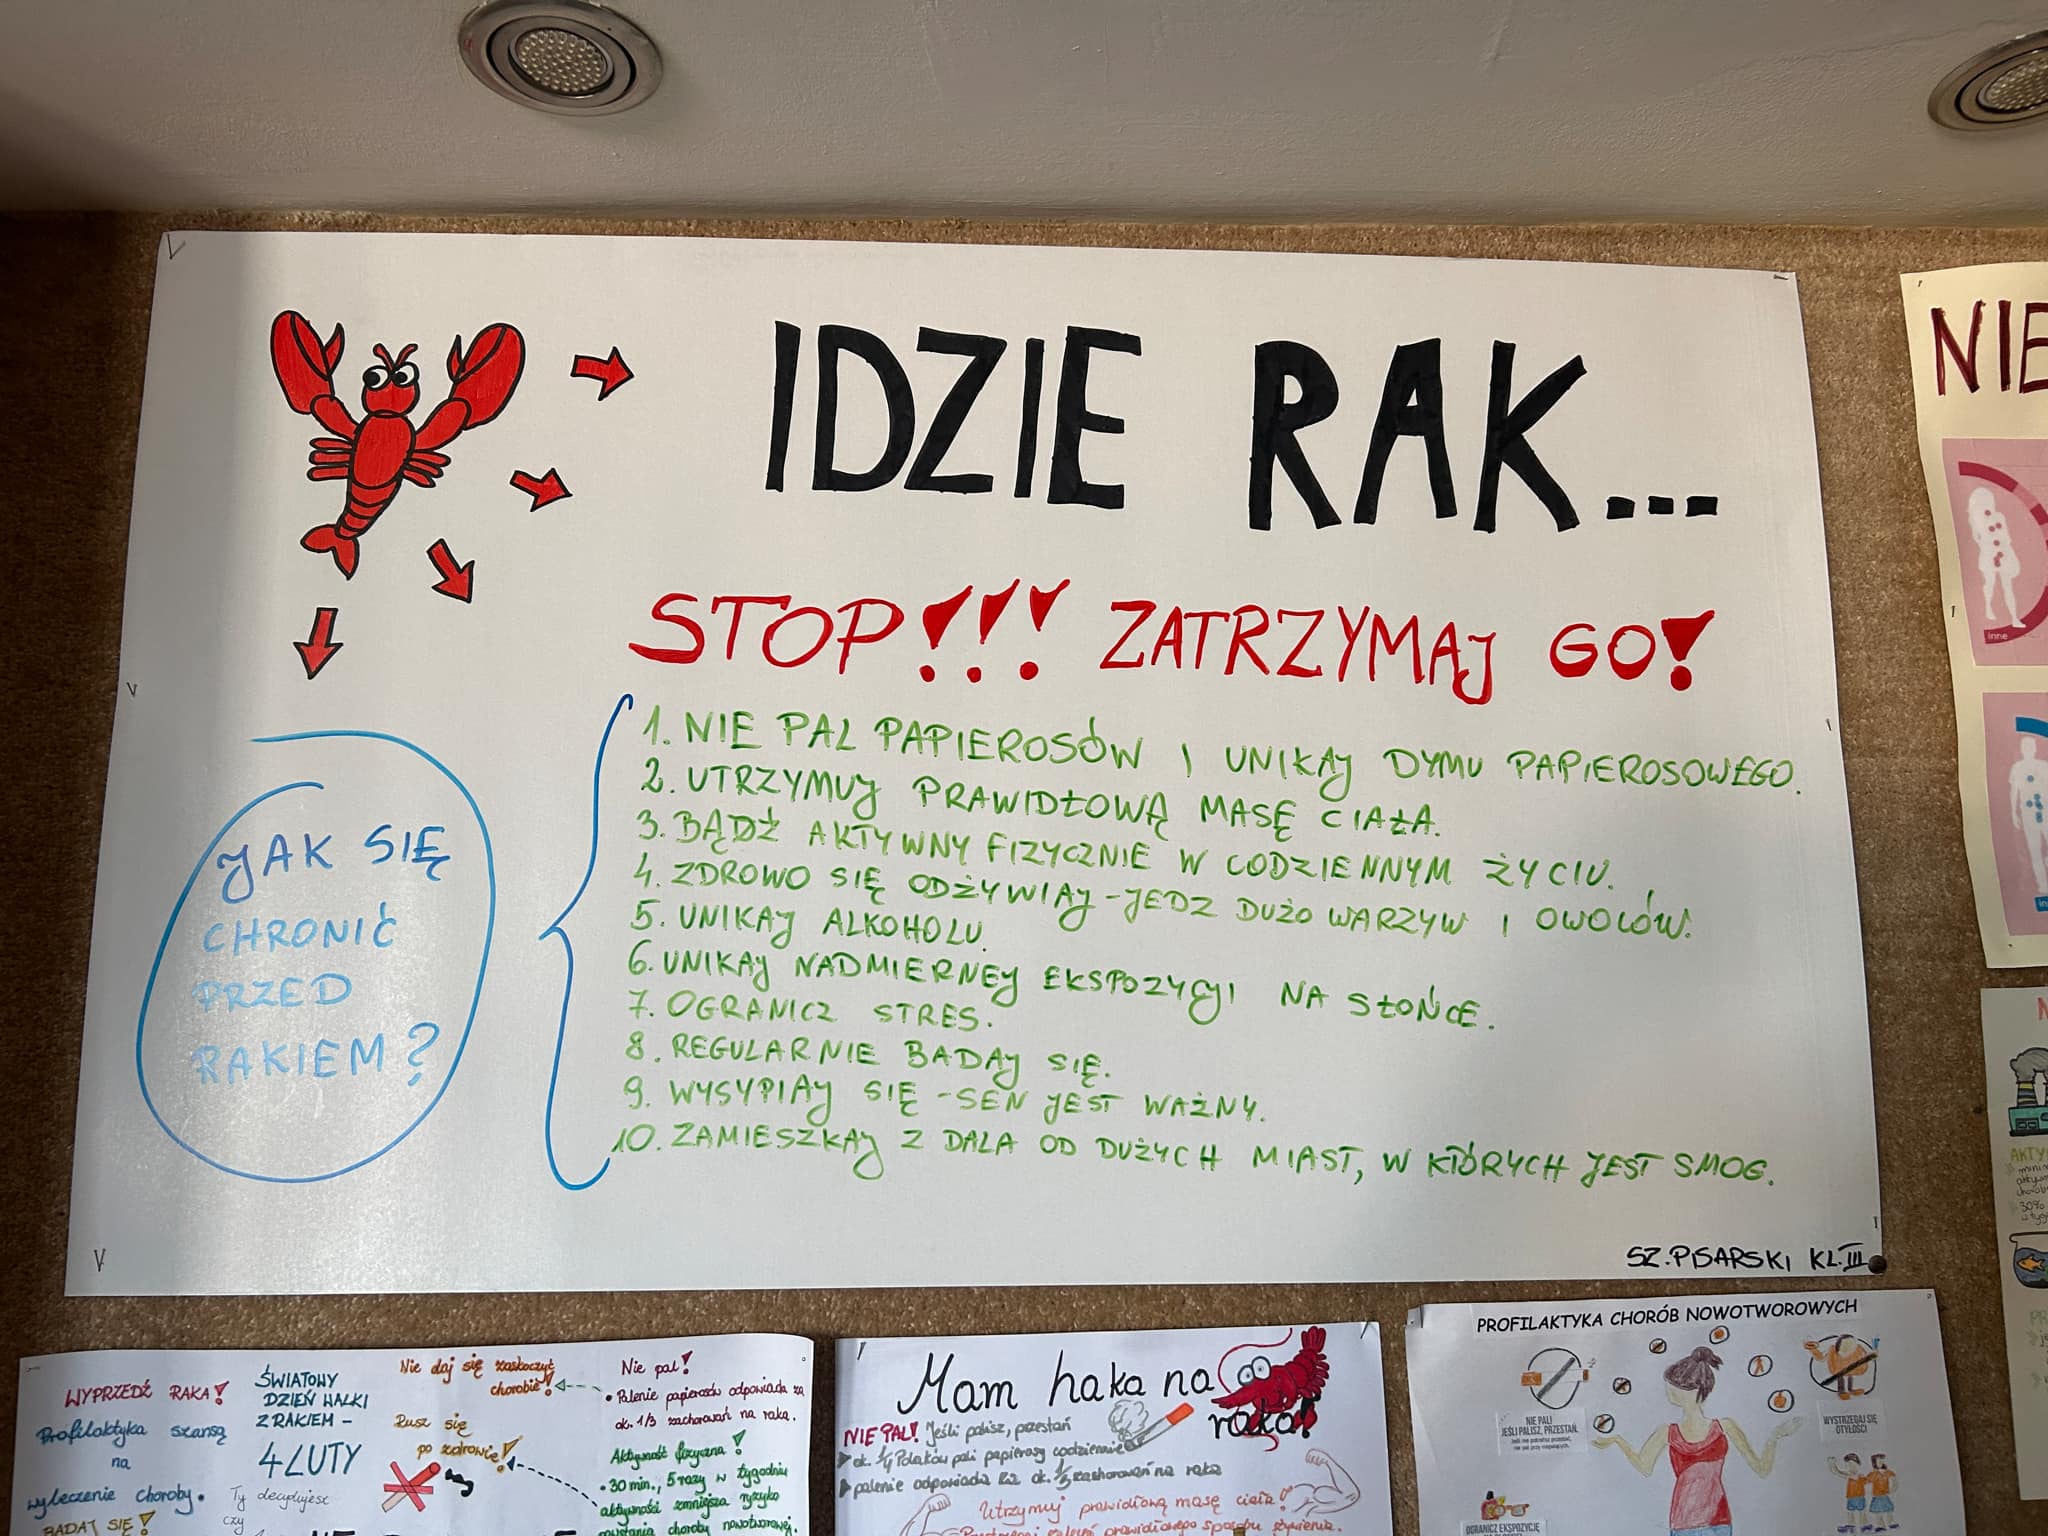 IDZIE RAK...
STOP!!! ZATRZYMAJ GO!
JAK SIĘ
CHRONIĆ
PRZED
RAKIEM?
1. NIE PAL PAPIEROSÓW I UNIKAJ DYMU PAPIEROSOWEGO.
2. UTRZYMUJ PRAWIDŁOWĄ MASĘ CIAŁA.
3. BĄDŹ AKTYWNY FIZYCZNIE W CODZIENNYM ŻYCIU.
4. ZDROWO SIĘ ODŻYWIAJ - JEDZ DUŻO WARZYW I OWOCÓW.
5. UNIKAJ ALKOHOLU.
6. UNIKAJ NADMIERNEJ EKSPOZYCJI NA SŁOŃCE.
7. OGRANICZ STRES.
8. REGULARNIE BADAJ SIĘ.
9. WYSYPIAJ SIĘ - SEN JEST WAŻNY.
10. ZAMIESZKAJ Z DALA OD DUŻYCH MIAST, W KTÓRYCH JEST SMOG.
SZ. PISARSKI KL. III
NIE
inne
WYPRZEDŹ RAKA!
Profilaktyka szansą
na
wyleczenie choroby.
BADAJ SIĘ!
ŚWIATOWY
DZIEŃ WALKI
Z RAKIEM -
4 LUTY
Ty decydujesz
czy
Nie daj się zaskoczyć
chorobie!
Rusz się
po zdrowie!
Nie pal!
• Palenie papierosów odpowiada za
ok. 1/3 zachorowań na raka.
Aktywność fizyczna!
• 30 min., 5 razy w tygodniu
aktywności zmniejsza ryzyko
powstania choroby nowotworowej.
Mam haka na
raka!
NIE PAL! Jeśli palisz, przestań
ok. 1/4 Polaków pali papierosy codziennie
palenie odpowiada za ok. 1/3 zachorowań na raka
Utrzymuj prawidłową masę ciała!
PROFILAKTYKA CHORÓB NOWOTWOROWYCH
NIE PALI
JEŚLI PALISZ, PRZESTAŃ.
WYSTRZEGAJ SIĘ
OTYŁOŚCI
OGRANICZ EKSPOZYCJĘ